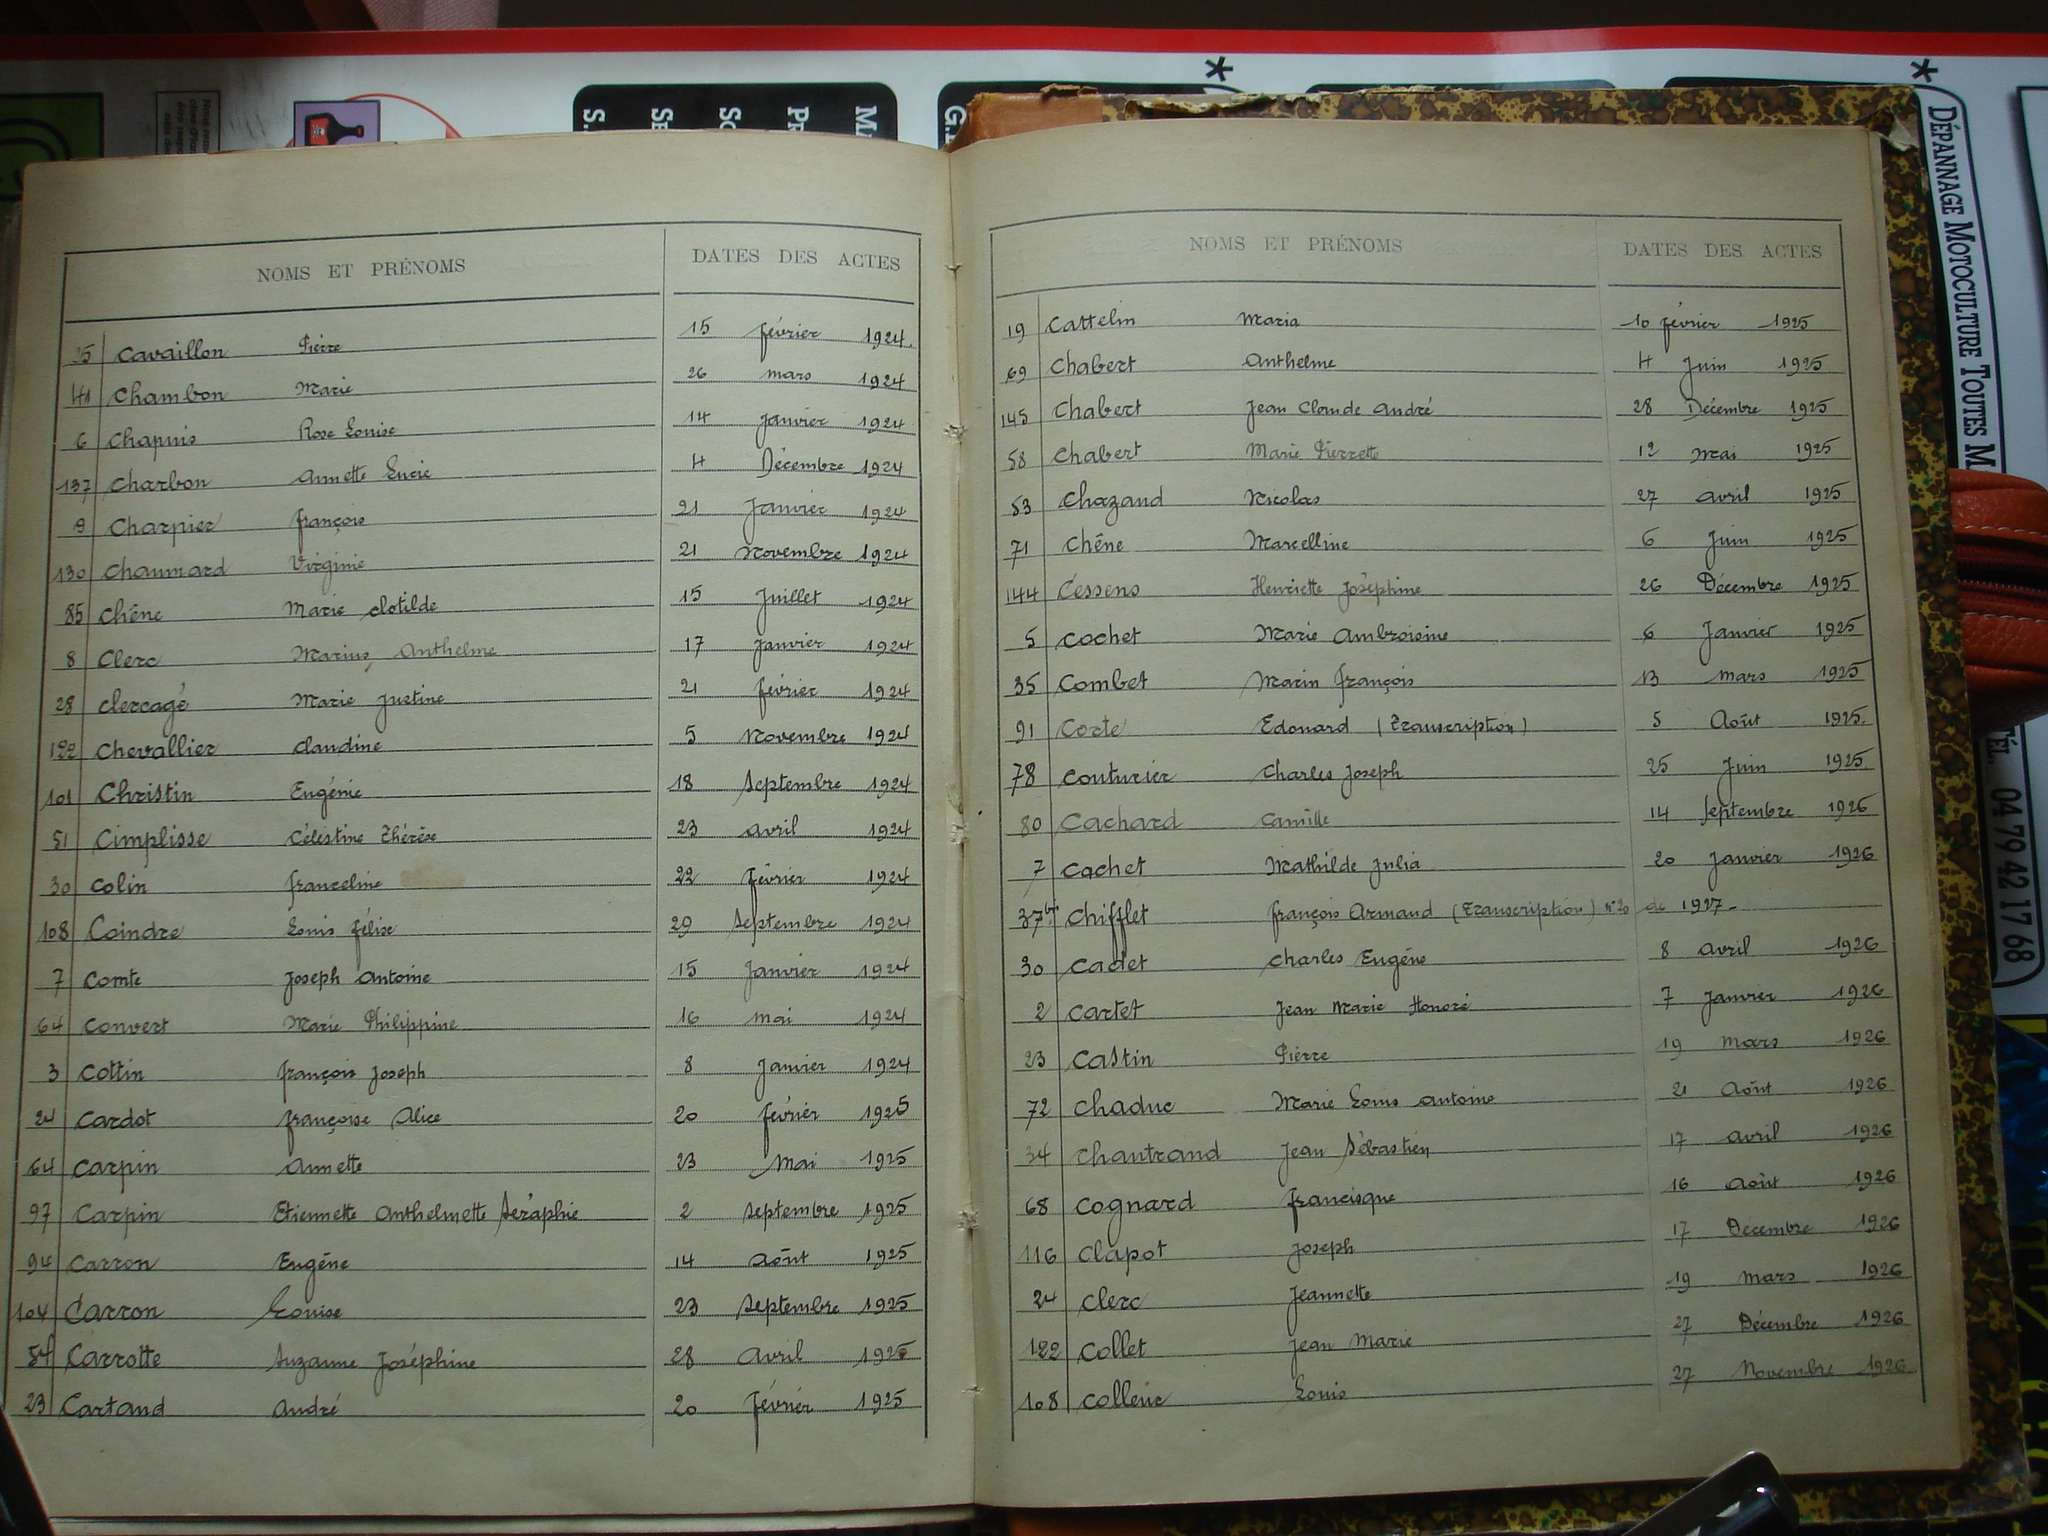 NOMS ET PRÉNOMS DATES DES ACTES
Cavaillon Pierre 15 février 1924
41 Chambon Marie 26 mars 1924
6 Chapuis Rose Louise 14 Janvier 1924
137 Charbon Annette Lucie 4 Décembre 1924
9 Charpier François 21 Janvier 1924
130 Chaumard Virginie 21 Novembre 1924
85 Chêne Marie Clotilde 15 Juillet 1924
8 Clerc Marius, Anthelme 17 Janvier 1924
28 Clercagé Marie Justine 21 février 1924
122 Chevallier Claudine 5 Novembre 1924
101 Christin Eugénie 18 Septembre 1924
51 Cimplisse Célestine Thérèse 23 avril 1924
30 Colin Franceline 22 Février 1924
108 Coindre Louis Félise 29 Septembre 1924
7 Comte Joseph Antoine 15 Janvier 1924
64 Convert Marie Philippine 16 Mai 1924
3 Cottin François Joseph 8 Janvier 1924
24 Cardot Françoise Alice 20 février 1925
64 Carpin Annette 23 Mai 1925
97 Carpin Etiennette Anthelmette Séraphie 2 Septembre 1925
94 Carron Eugène 14 Août 1925
104 Carron Louise 23 Septembre 1925
54 Carrotte Suzanne Joséphine 28 Avril 1925
23 Cartand André 20 Février 1925
NOMS ET PRÉNOMS DATES DES ACTES
19 Cattelin Maria 10 février 1925
69 Chabert Anthelme 4 Juin 1925
145 Chabert Jean Claude André 28 Décembre 1925
58 Chabert Marie Pierrette 12 Mai 1925
53 Chazand Nicolas 27 avril 1925
71 Chêne Marcelline 6 Juin 1925
144 Cessens Henriette Joséphine 26 Décembre 1925
5 Cochet Marie Ambroisine 6 Janvier 1925
35 Combet Marin François 13 Mars 1925
91 Corte Edouard (Transcription) 5 Août 1925
78 Couturier Charles Joseph 25 Juin 1925
80 Cachard Camille 14 Septembre 1926
7 Cachet Mathilde Julia 20 Janvier 1926
37bis Chifflet François Armand (Transcription) n°20 de 1927
30 Cadet Charles Eugène 8 Avril 1926
2 Cartet Jean Marie Honoré 7 Janvier 1926
23 Castin Pierre 19 Mars 1926
72 Chaduc Marie Louis Antoine 21 Août 1926
34 Chantrand Jean Sébastien 17 Avril 1926
68 Cognard Francisque 16 Août 1926
116 Clapot Joseph 17 Décembre 1926
24 Clerc Jeannette 19 Mars 1926
122 Collet Jean Marie 27 Décembre 1926
108 Louis 27 Novembre 1926
DÉPANNAGE MOTOCULTURE TOUTES M
TÉL. 04 79 42 17 68